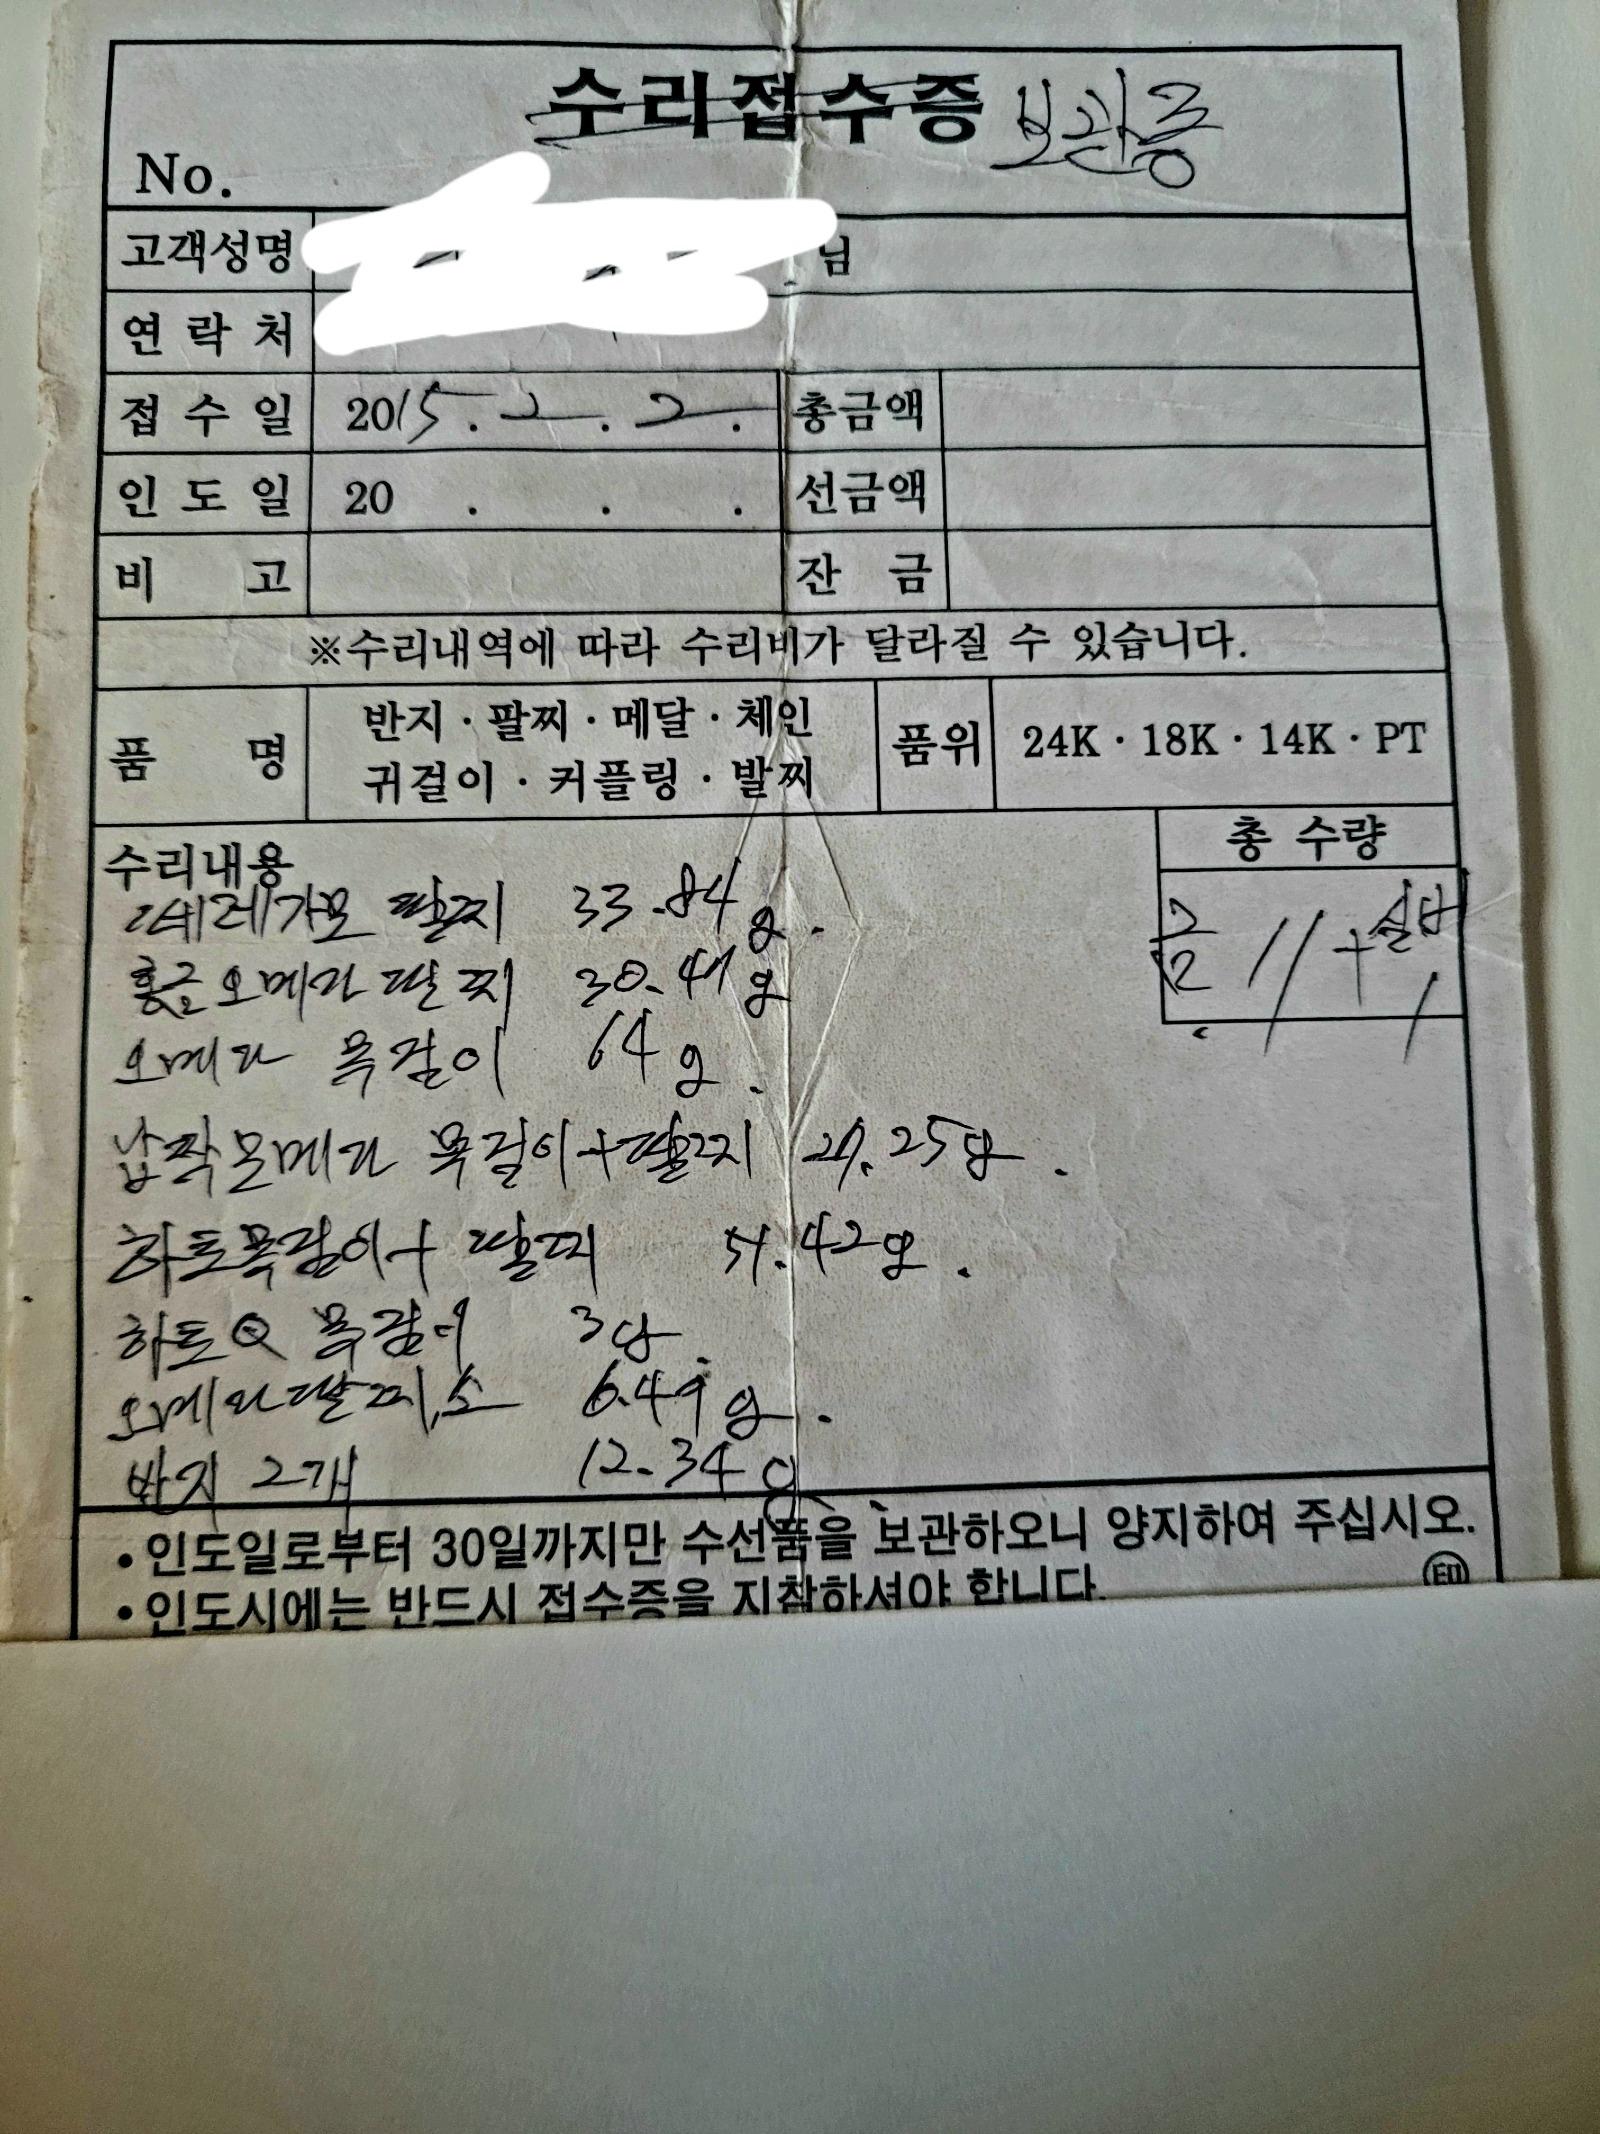 수리접수증 보관증
No.
고객성명 님
연락처
접수일 2015. 2. 2. 총금액
인도일 20 . . . 선금액
비고 잔금
※수리내역에 따라 수리비가 달라질 수 있습니다.
품명 반지·팔찌·메달·체인 품위 24K·18K·14K·PT
귀걸이·커플링·발찌
총 수량
수리내용
페레가모 팔찌 33.84g.
금 11 + 실버 1
홍금오메가 팔찌 30.47g
오메가 목걸이 64g.
납작오메가 목걸이+팔찌 27.25g.
하트목걸이+팔찌 .42g.
하트Q 목걸이 3g.
오메가팔찌,소 6.49g.
반지 2개 12.34g
• 인도일로부터 30일까지만 수선품을 보관하오니 양지하여 주십시오.
• 인도시에는 반드시 접수증을 지참하셔야 합니다. 印